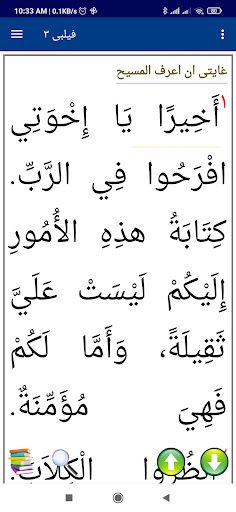 10:33 AM | 0.1KB/s
فيلبي ٣
غايتى ان اعرف المسيح
١ أَخِيرًا يَا إِخْوَتِي
افْرَحُوا فِي الرَّبِّ.
كِتَابَةُ هذِهِ الأُمُورِ
إِلَيْكُمْ لَيْسَتْ عَلَيَّ
ثَقِيلَةً، وَأَمَّا لَكُمْ
فَهِيَ مُؤَمِّنَةٌ.
انْظُرُوا الْكِلاَبَ.